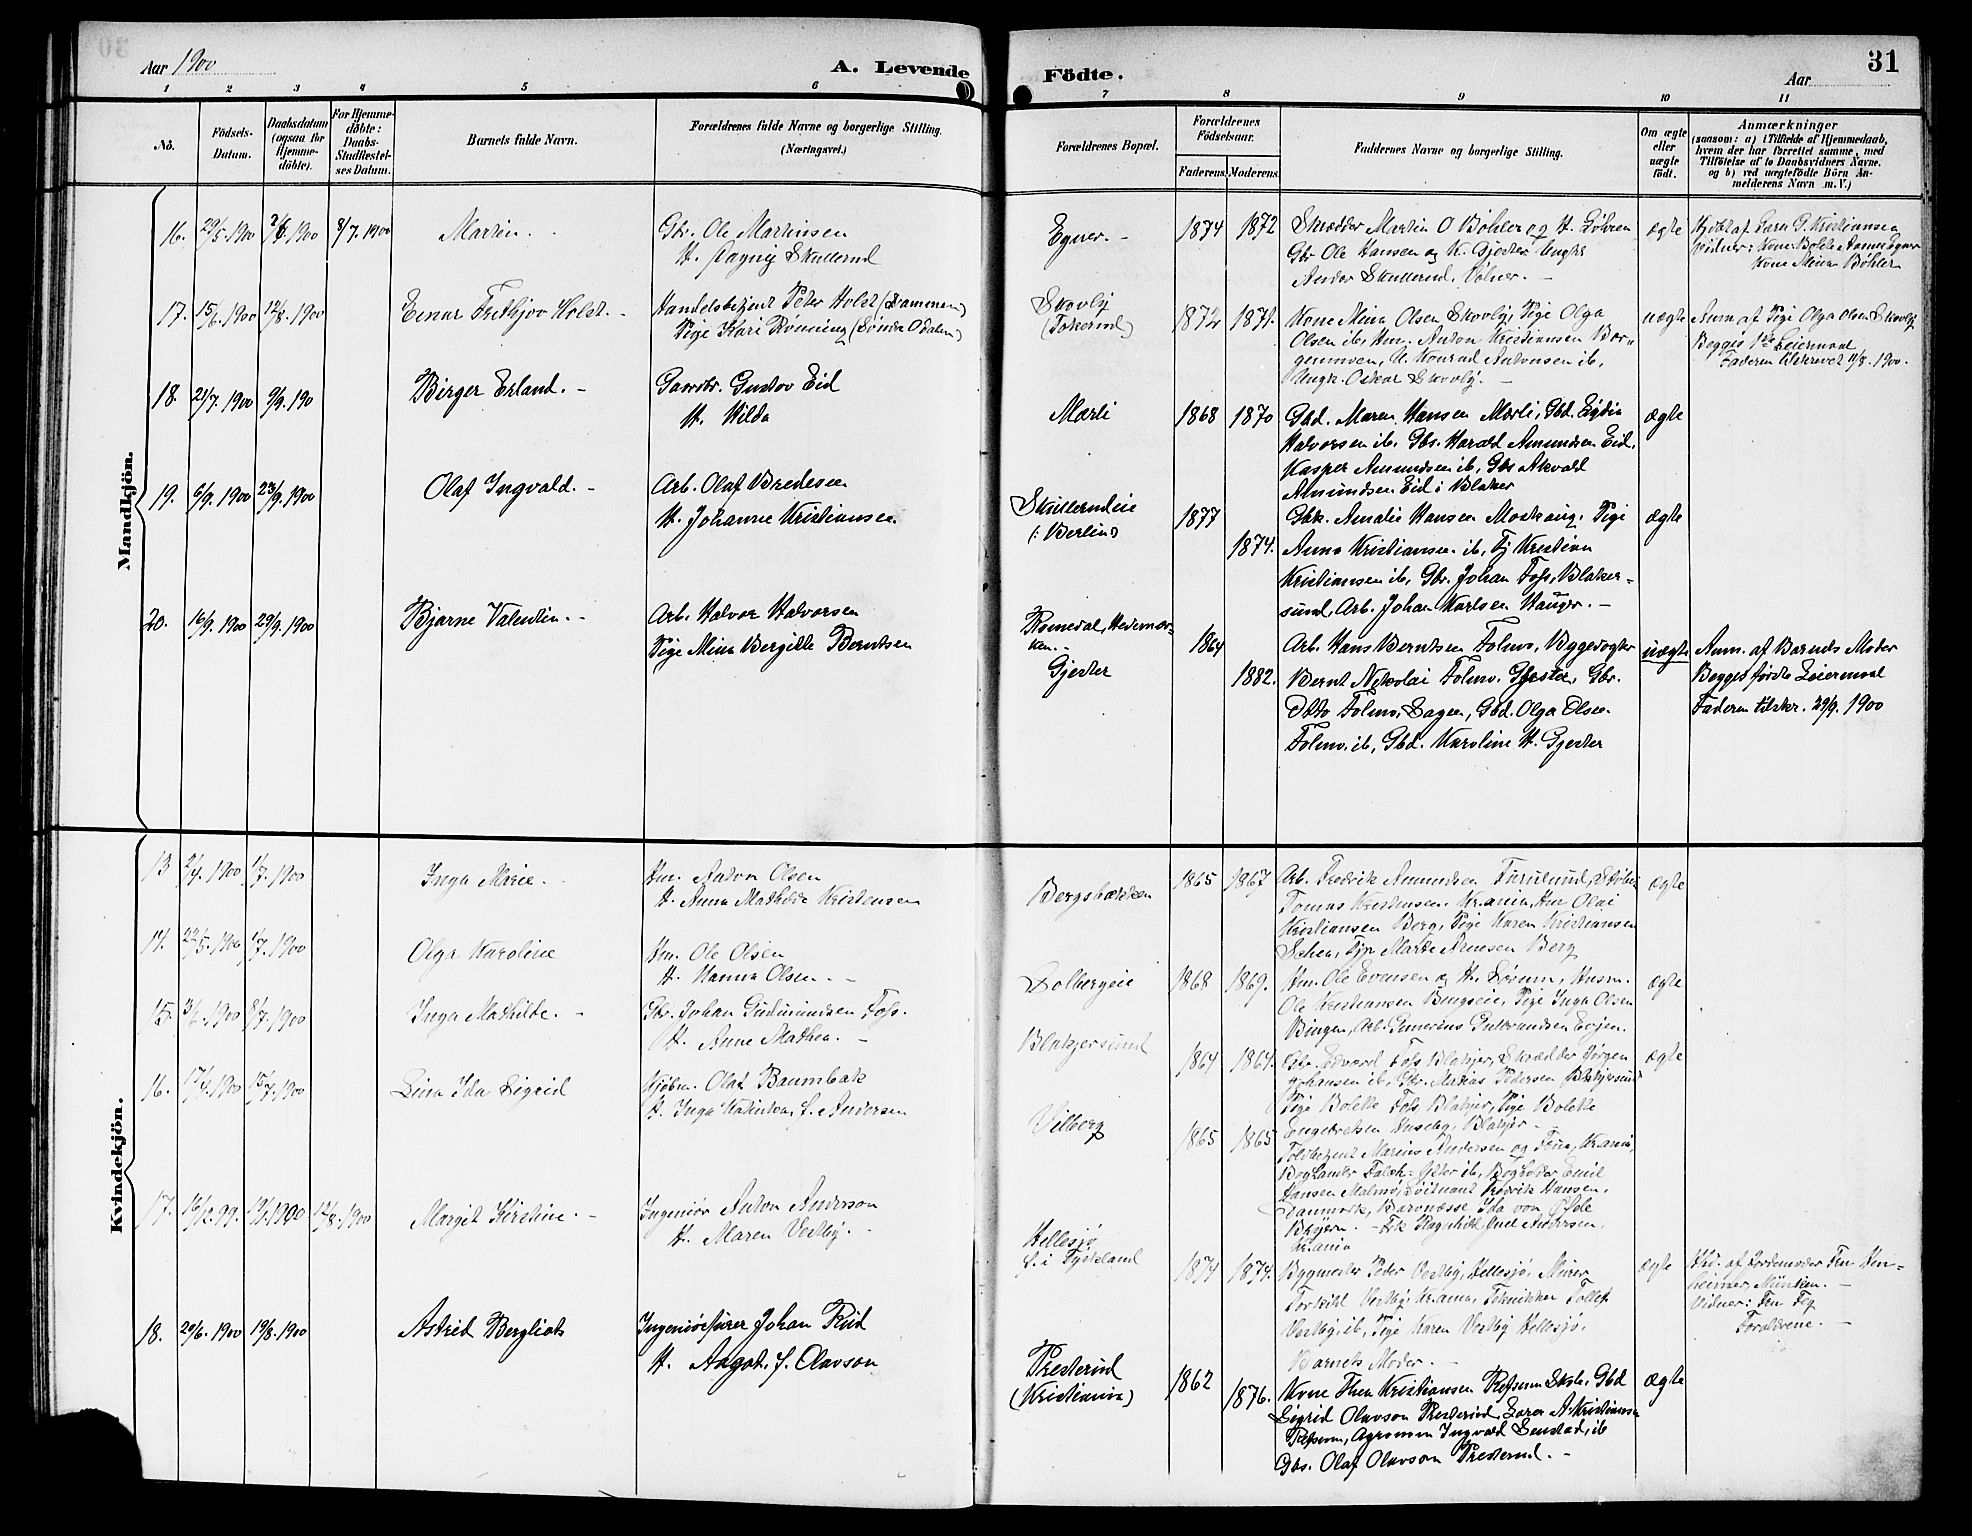 Aar 1900
A. Levende
Födte.
Aar
31
1 2 3 4 5 6 7 8 9 10 11
No.
Födsels-
Datum.
Daabsdatum
(ogsaa for
Hjemme-
döbte).
For Hjemme-
döbte:
Daabs-
Stadfæstel-
ses Datum.
Barnets fulde Navn.
Forældrenes fulde Navne og borgerlige Stilling.
(Næringsvei.)
Forældrenes Bopæl.
Forældrenes
Födselsaar.
Faderens
Moderens
Faddernes Navne og borgerlige Stilling.
Om ægte
eller
uægte
født.
Anmærkninger
(saasom: a) i Tilfælde af Hjemmedaab,
hvem der har forrettet samme, med
Tilföielse af to Daabsvidners Navne,
og b) ved uægtefödte Börn An-
melderens Navn m.V.)
Mandkjön.
16. 29/5. 1900 1900 8/7. 1900
Martin.
Gbr. Ole Martinsen
H. Skullerud
Egner.
1874 1872
Skrædder Martin O Bøhler og H.
Gbr Ole Hansen og K. Gjester, Ungk.
Skullerud, Volner.
ægte
Kone Minna Bøhler
17. 15/6. 1900 12/8. 1900
Einar Fritbjov Holst.
Handelsbetjent Peter Holst (Drammen)
Pige Kari Rønning (Søndre Odalen)
Skovly
1872 1871.
Kone Mina Olsen Skovly, Pige Olga
Olsen ib, Hm. Anton Kristiansen Bor-
germoen, Konrad Antonsen ib,
Ungk. Oskar Skovly.
uægte
Anm af Pige Olga Olsen Skovly
Begges 1ste Leiermaal
Faderen tilskrevet 11/8. 1900.
18. 21/7. 1900 9/9. 190
Birger Erland.
Gaardbr. Gustov Eid
H. Hilda
Mærli
1868 1870
Gbd. Maren Hansen Mærli, Gbd.
Halvorsen ib, Gbs. Harald Amundsen Eid,
Kasper Amundsen ib, Gbs Akvald
Amundsen Eid i Blaker
ægte
19. 6/9. 1900 23/9. 1900
Olaf Ingvald.
Arb. Olaf Bredesen
H. Johanne Kristiansen
Skullerudeie
(: Berlin)
1877
1874.
Gbk. Amalie Hansen Moskaug, Pige
Anna Kristiansen ib, Tj Kristian
Kristiansen ib, Gbr. Johan Foss, Blaker-
sund, Arb. Johan Karlsen Hauger.
ægte
20. 16/9. 1900 29/9. 1900
Bjarne Valentin.
Arb. Halvor Halvorsen
Pige Mina Bergitte Berntsen
Romedal, Hedemar-
ken.
Gjester
1864
1882.
Arb. Hans Berntsen Folmo, Byggefogter
Bernt Nikolai Folmo, Gjester, Gbr.
Otto Folmo, Hagen, Gbd. Olga Olsen
Folmo, ib, Gbd. Karoline H. Gjester
uægte
Anm. af Barnets Moder
Begges første Leiermaal
Faderen tilskr. 29/9. 1900
Kvindekjön.
13 2/4. 1900 1/7. 1900
Inga Marie.
Hm. Anton Olsen
H. Anna Mathilde Kristensen
Bergsbækken
1865 1867
Arb. Fredrik Amundsen Furulund,
Tomas Kristensen, Kr.ania, Hm Olai
Kristiansen Berg, Pige Karen Kristiansen
Marte Arnesen Berg
ægte
14. 1900 1/7. 1900
Olga Karoline
Hm. Ole Olsen
H. Hanna Olsen.
Solbergeie
1868 1869.
Hm. Ole Evensen og H. Sørum, Husm.
Ole Kristiansen Bingseie, Pige Inga Olsen
Bingen, Arb. Gunerius Gulbrandsen Evjen.
ægte
15. 3/6. 1900 8/7. 1900
Inga Mathilde.
Gbr. Johan Gudmundsen Foss.
H. Anne Mathea.
Blakjersund
1864 1864.
Gbr. Edvard Foss Blakjer, Skrædder Jørgen
Johansen ib, Gbr. Matias Pedersen Blakjersund
Pige Bolette Foss, Blakjer, Pige Bolette
Engebretsen Huseby, Blakjer.
ægte
16. 17/4. 1900 15/7. 1900
Lina Ida Sigrid
Kjøbm. Olaf Baumbak
H. Inga Katinka, f. Andersen
Vilberg
1865 1865
Toldbetjent Marius Andersen og Frue, Kr.ania,
Boghandler ib, Bogholder Emil
Hansen Malmö, Løitnant Fredrik Hansen,
Danmark, Baronesse Ida von
Baÿern. Frk Ragnhild Andersen,
Kr.ania
17. 16/12. 99. 1900 12/8. 1900
Margit Kirstine.
Ingeniør Anton Anderson
H. Maren Vestby.
Hellesjø
f. i Tyskland
1874 1874.
Bygmester Peder Vestby, Hellesjø, Murer
Torkild Vestby, Kr.ania, Tekniker Tollef
Vestby, ib, Pige Karen Vestby Hellesjø.
Barnets Moder.
ægte
Hd. af Jordemoder Fru Hen-
heimer München.
Vidner: Fru
Forældrene.
18. 29/6. 1900 19/8. 1900
Astrid Bergliot
Johan Rud
H. Aagot, f. Olavson
Presterud
(Kristiania)
1862
1876.
Kone Thea Kristiansen Refsum Skole, Gbd
Sigrid Olavson Presterud, Lærer A. Kristiansen
Refsum, Agronom Ingvald Senstad, ib
Gbs. Olaf Olavson Presterud.
ægte